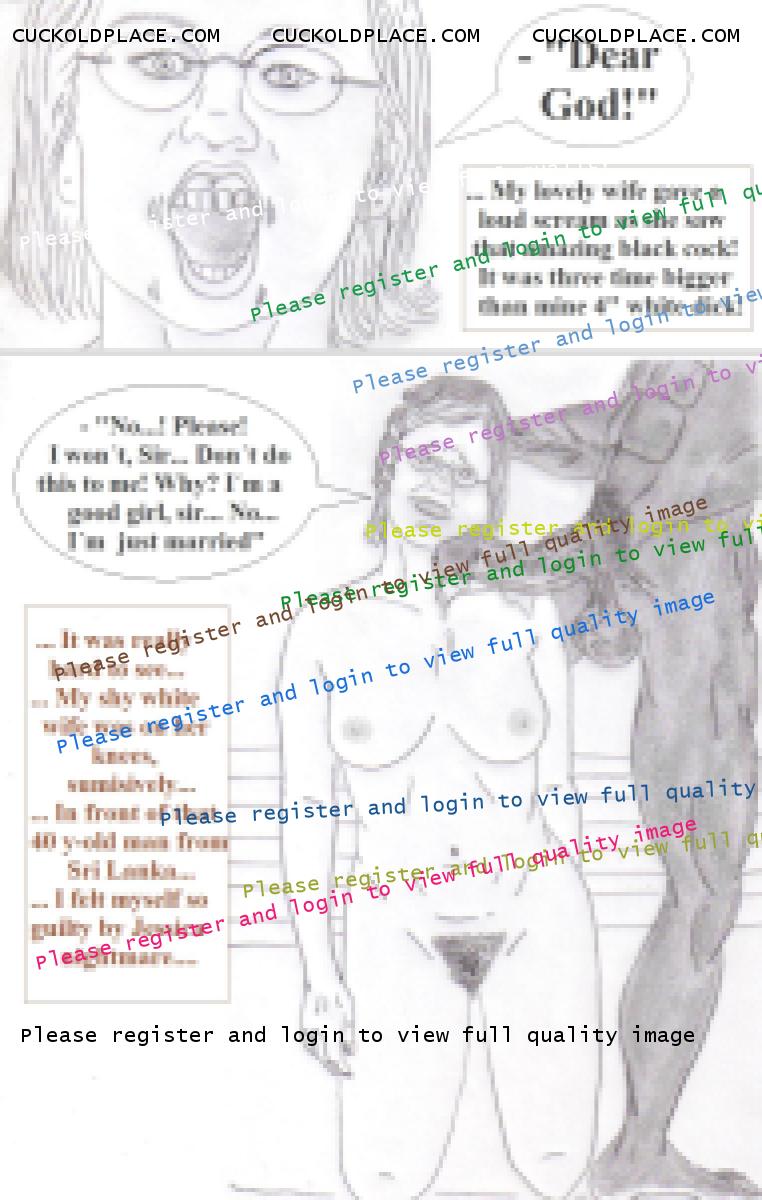 CUCKOLDPLACE.COM CUCKOLDPLACE.COM CUCKOLDPLACE.COM
- "Dear
God!"
... My lovely wife gave a
loud scream as she saw
that amazing black cock!
It was three time bigger
than mine 4" white dick!
Please register and login to view
Please register and login to view full
Please register and login to view
Please register and login to
- "No...! Please!
I won't, Sir... Don't do
this to me! Why? I'm a
good girl, sir... No...
I'm just married"
Please register and login to
Please register and login to view full quality image
Please register and login to view full
... It was really
to see...
... My shy white
wife was on her
knees,
sumisively...
... In front of that
40 y-old man from
Sri Lanka...
... I felt myself so
guilty by
nightmare...
Please register and login to view full quality image
Please register and login to view full quality
Please register and login to view full
Please register and login to view full quality image
Please register and login to view full quality image